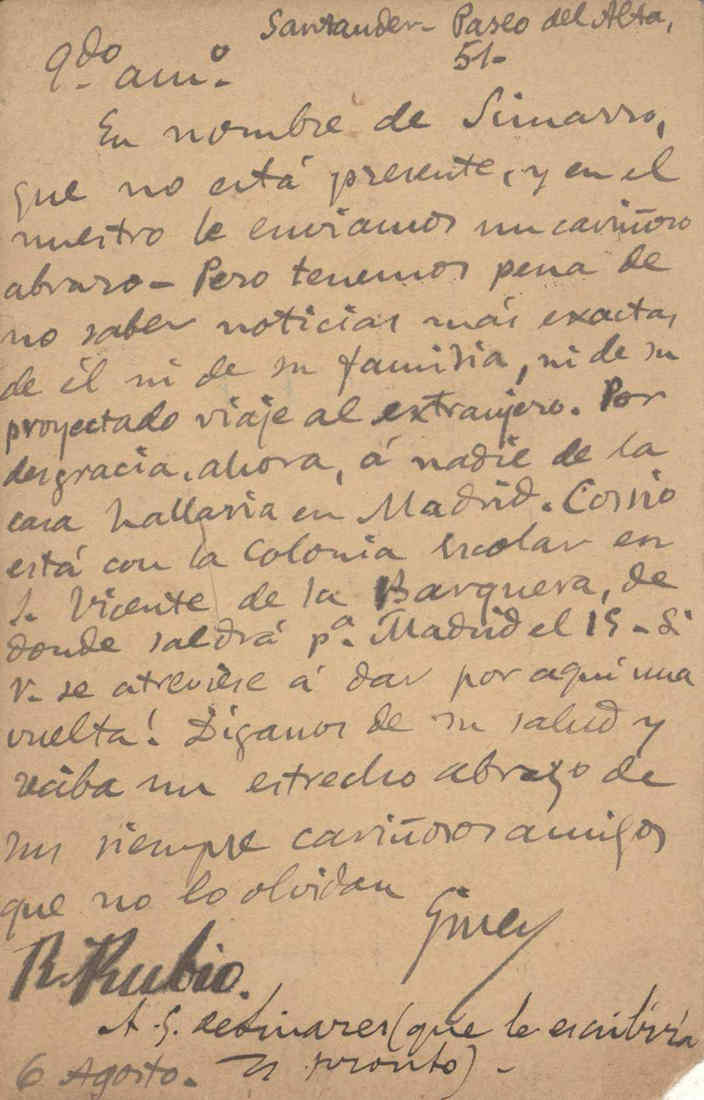 Santander - Paseo del Alta,
51-
Qdo. amo.
En nombre de Simarro,
que no está presente, y en el
nuestro le enviamos un cariñoso
abrazo - Pero tenemos pena de
no saber noticias más exactas
de él ni de su familia, ni de su
proyectado viaje al extranjero. Por
desgracia, ahora, á nadie de la
casa hallaria en Madrid. Cossio
está con la Colonia escolar en
S. Vicente de la Barquera, de
donde saldrá pa. Madrid el 15 - Si
V. se atreviese á dar por aquí una
vuelta! Díganos de su salud y
reciba un estrecho abrazo de
sus siempre cariñosos amigos
que no lo olvidan
Giner
R. Rubio.
A. G. de Linares (que le escribiría
6 Agosto. pronto) -